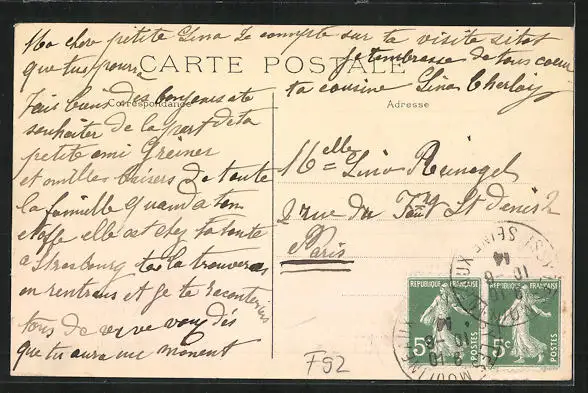 Ma cher petite Lina Je compte sur ta visite sitot
que tu pourra
CARTE POSTALE
Je t'embrasse de tous coeur
ta cousine Lina
Correspondance
Adresse
Fais bien des
souhaiter de la part de ta
petite ami Greiner
et milles baisers de toute
la famille Quand a ton
etoffe elle est chez ta tante
a Strasbourg tu la trouveras
en rentrant et Je te raconterais
tous de vive voix dés
que tu aura un moment
Melle Lina
2 rue du St Denis 2
Paris
REPUBLIQUE FRANÇAISE
5c
POSTES
REPUBLIQUE FRANÇAISE
5c
POSTES
10-6
14
F92